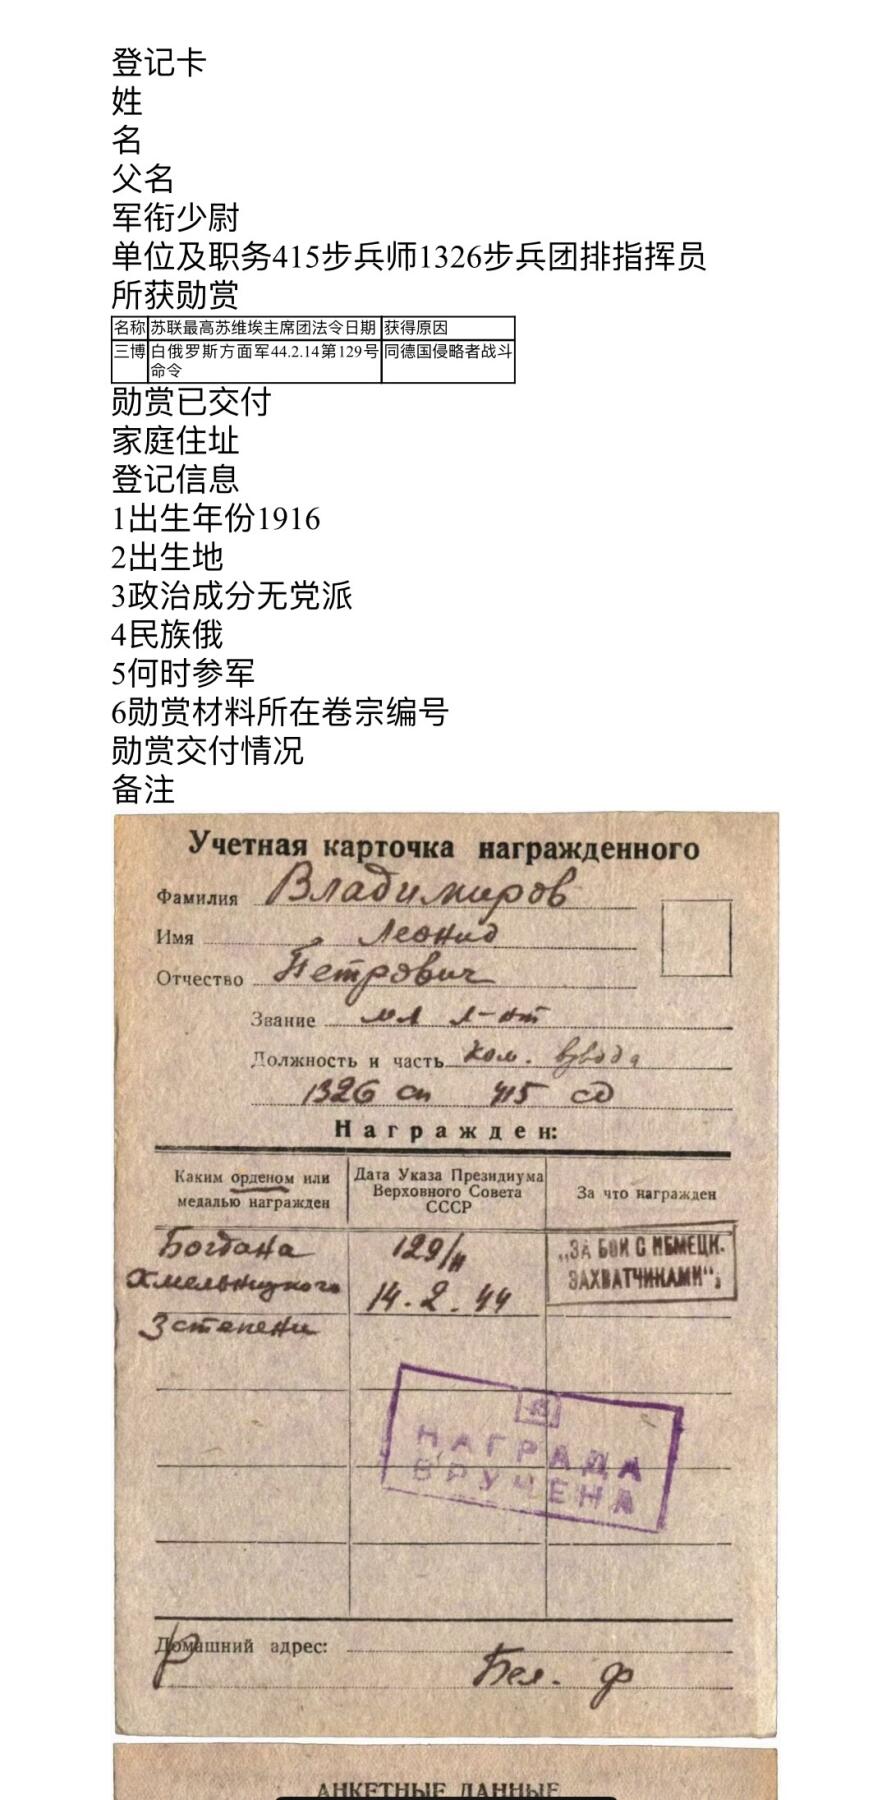 登记卡
姓
名
父名
军衔少尉
单位及职务415步兵师1326步兵团排指挥员
所获勋赏
名称 苏联最高苏维埃主席团法令日期 获得原因
三博 白俄罗斯方面军44.2.14第129号命令 同德国侵略者战斗
勋赏已交付
家庭住址
登记信息
1出生年份1916
2出生地
3政治成分无党派
4民族俄
5何时参军
6勋赏材料所在卷宗编号
勋赏交付情况
备注
Учетная карточка награжденного
Фамилия Владимиров
Имя Леонид
Отчество Петрович
Звание мл л-нт
Должность и часть Ком. взвода
1326 сп 415 сд
Награжден:
Каким орденом или медалью награжден
Дата Указа Президиума Верховного Совета СССР
За что награжден
Богдана Хмельницкого 3 степени
129/н
14.2.44
„ЗА БОИ С НЕМЕЦК. ЗАХВАТЧИКАМИ“
НАГРАДА
ВРУЧЕНА
Домашний адрес:
Бел. ф
АНКЕТНЫЕ ДАННЫЕ